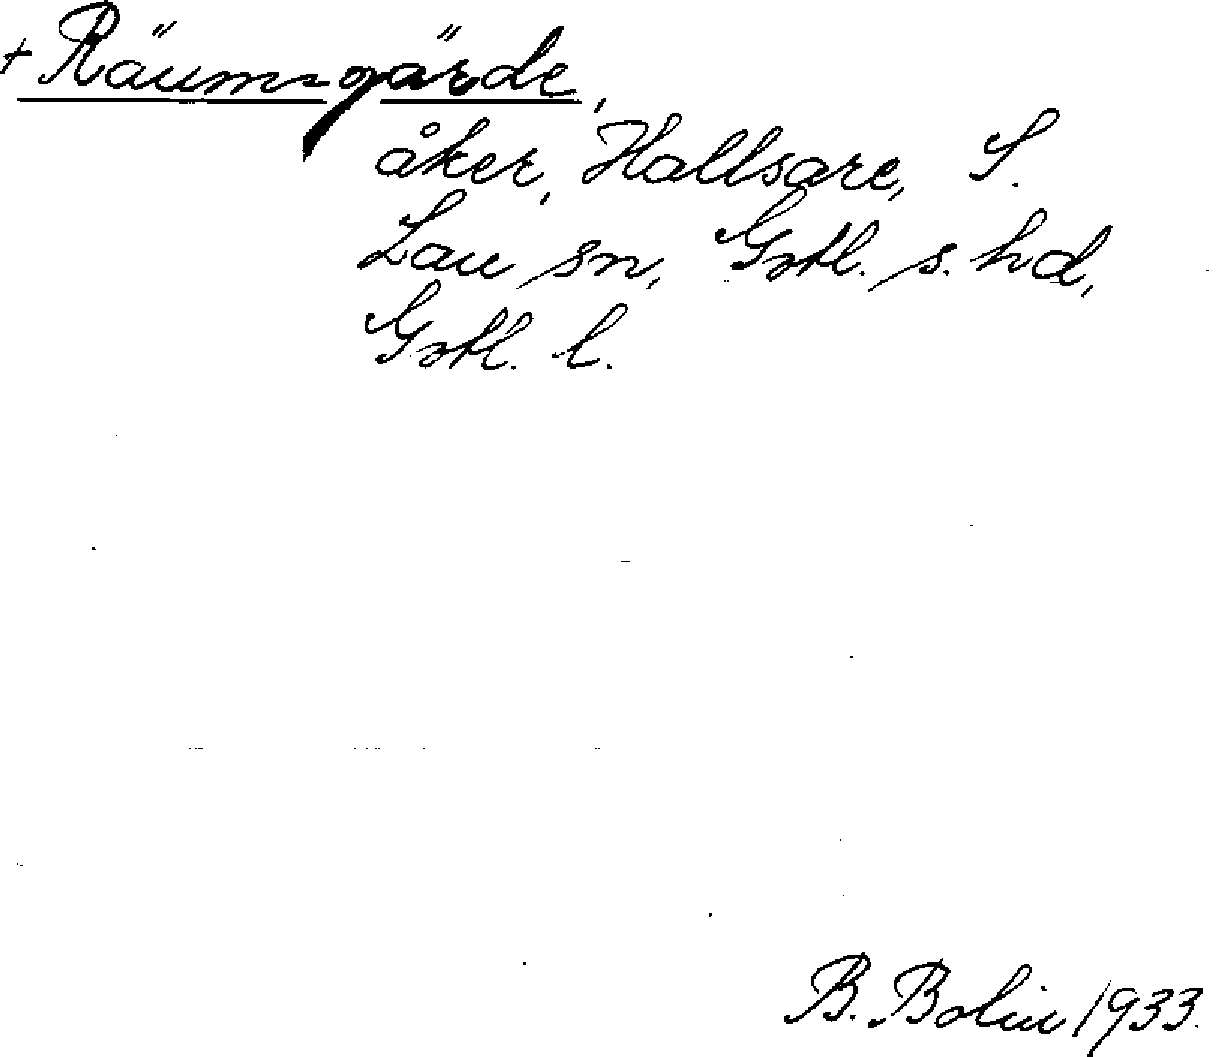 + Räumgärde,
åker, Hallsare, S.
Lau sn, Gotl. s. hd,
Gotl. l.
B. Bolin 1933.